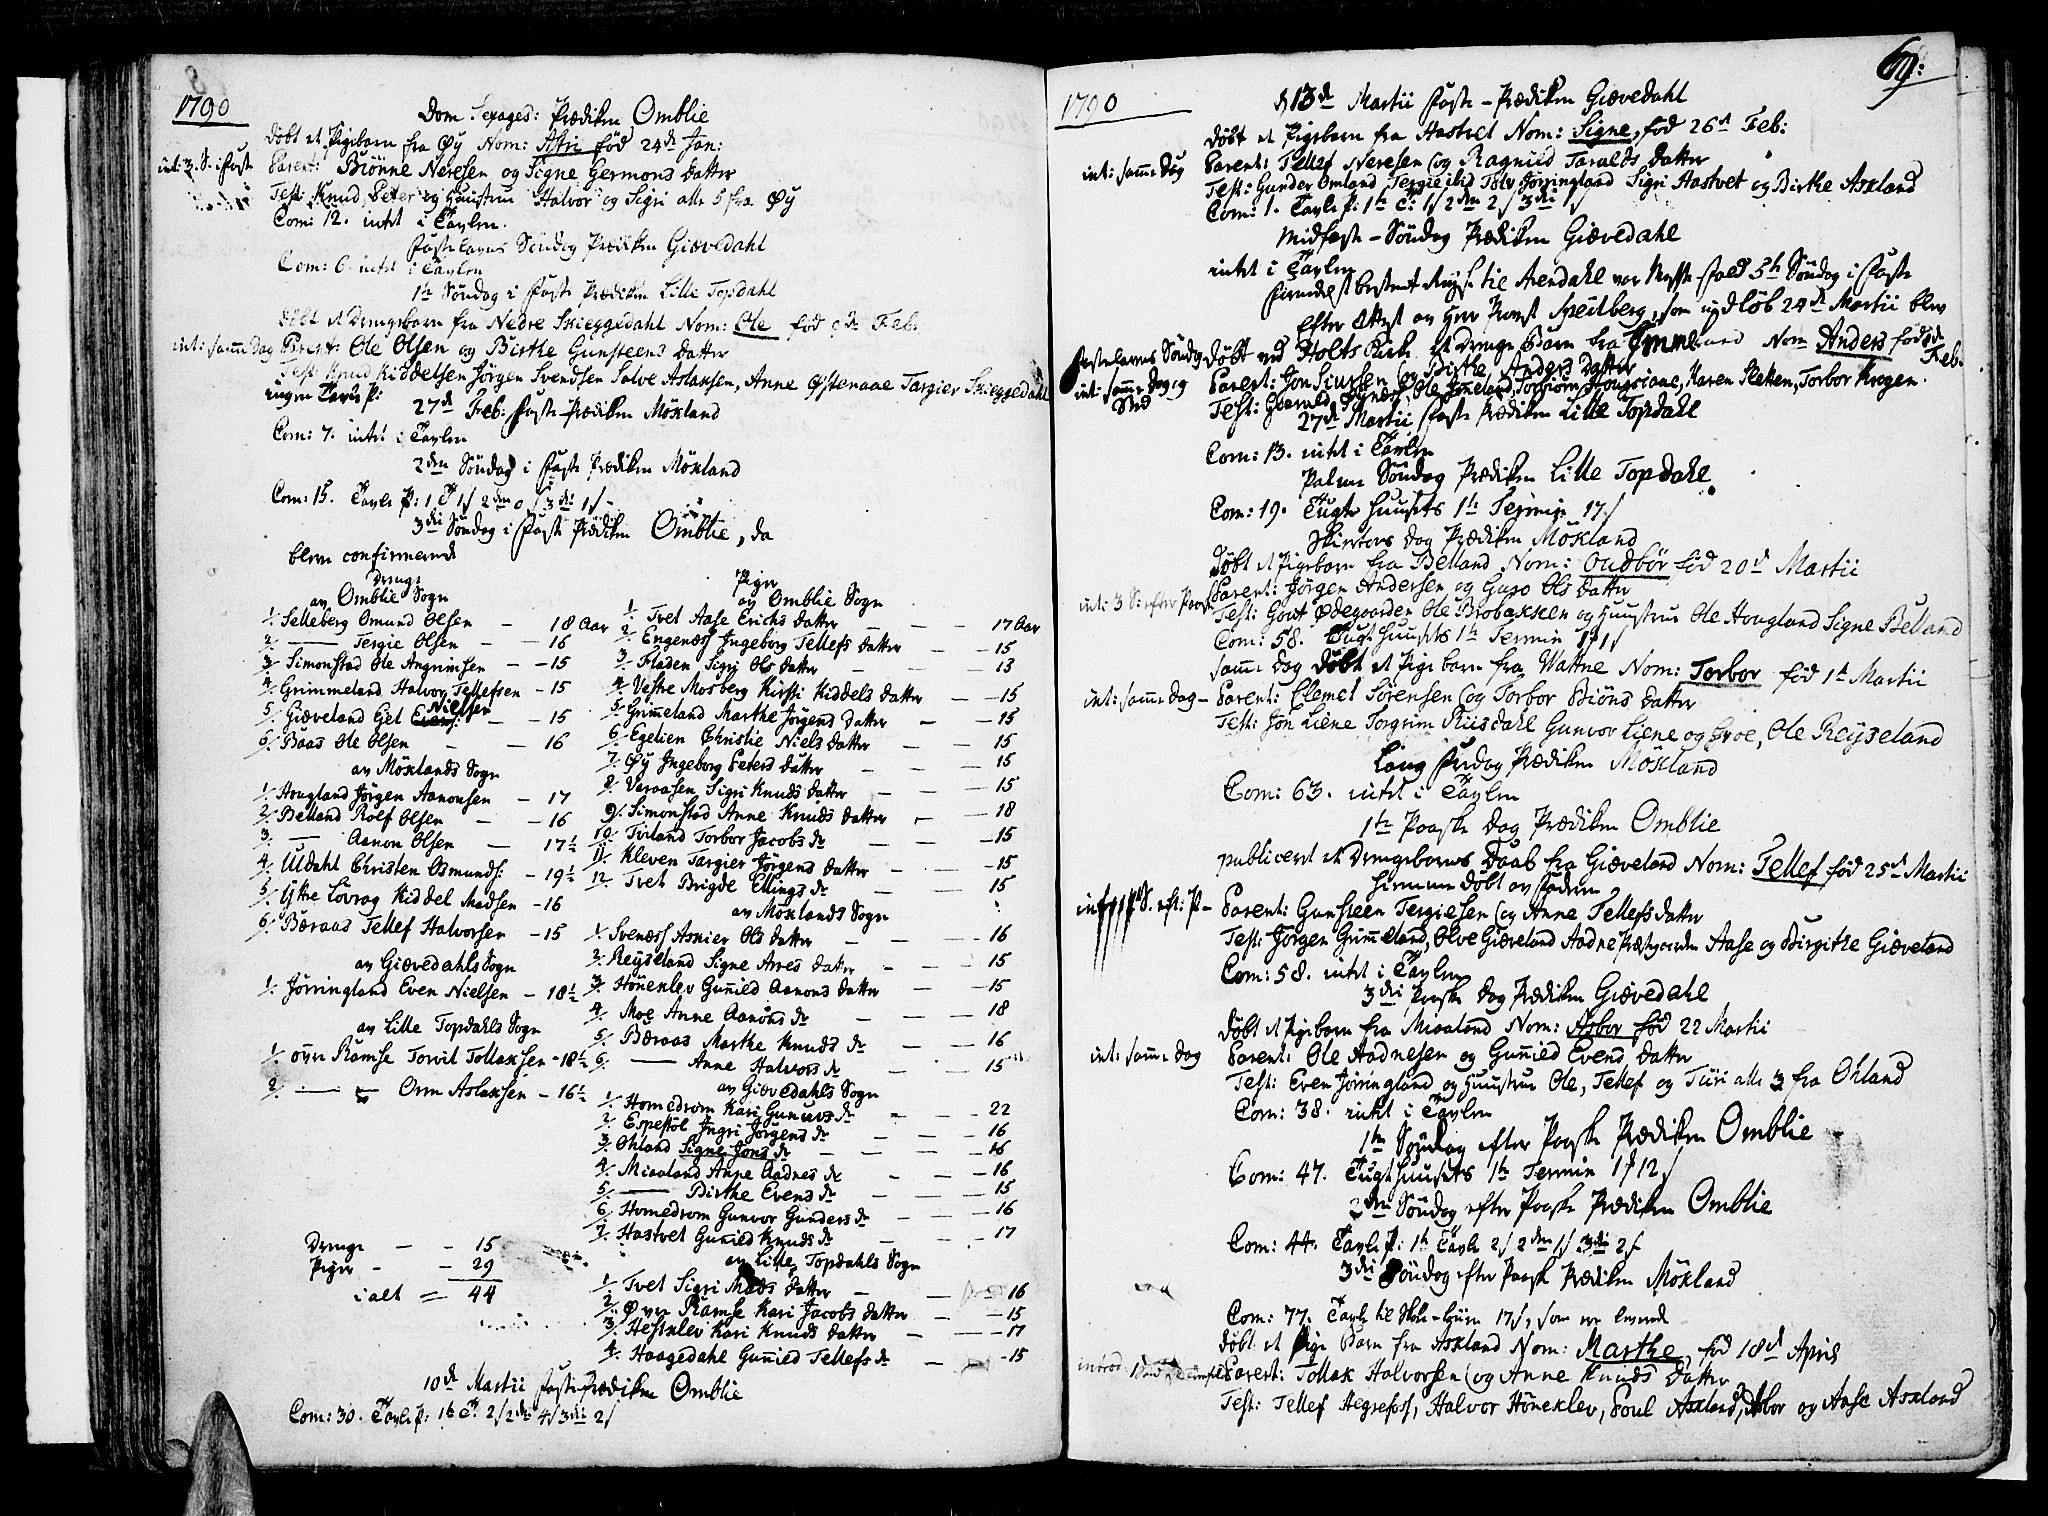 1790
Dom Sexages: Prædiken Omblie
døbt et Pigebarn fra Øy Nom: Astri fød 24de Jan:
int: 3. S. i Faste Parent: Biönne Neresen og Signe Germons datter
Test: Knud, Peter og Huustrue Halvor og Sigri alle 5 fra Øy
Com: 12. intet i Tavlen.
Fastelavns Söndag Prædiken Giævedahl
Com: 6. intet i Tavlen
1te Söndag i Faste Prædiken Lille Topdahl
døbt et Drengebarn fra Nedre Skieggedahl Nom: Ole fød de Feb.
int: samme Dag Parent: Ole Olsen og Birthe Gunsteens datter
Test: Knud Kiddelsen Jörgen Svendsen Salve Aslaksen, Anne Østenaae Targier Skieggedahl
ingen Tavle P:
27de Feb: Faste-Prædiken Möxland
Com: 7. intet i Tavlen
2den Söndag i Faste Prædiken Möxland
Com: 15. Tavle P: 1 T 1/ 2den 0/ 3die 1/-
3die Söndag i Faste Prædiken Omblie, da
bleve confirmerede
Drenge
av Omblie Sogn
1/. Selleberg Omund Olsen - 18 Aar
2/. —— Tergie Olsen - 16
3/. Simonstad Ole Angrimsen - - 15
4/. Grimmeland Halvor Tellefsen - 15
5/. Giæveland Gel Nielsen - - 15
6/. Baas Ole Olsen - - 16
av Möxlands Sogn
1/. Hougland Jörgen Aanonsen - 17
2/. Belland Rolf Olsen - - 16
3. —— Aanon Olsen - 17½
4/. Uldahl Christen Osmunds: - 19½
5/. Ytre Lövrag Kiddel Madsen - 16
6/. Bæraas Tellef Halvorsen - 15
av Giævedahls Sogn
1/. Jörringland Even Nielsen - 18½
av Lille Topdahls Sogn
1/. over Ramse Torvil Tollaksen - 18½
2/. —— Orm Aslaksen - 16½
Drenge - - 15
Piger - - 29
i alt = 44
Piger
av Omblie Sogn
1/. Tvet Aase Erichs datter - - - 17 Aar
2/. Engenæs Ingeborg Tellefs datter - - 15
3/. Fladen Sigri Ols datter - - 13
4/. Vestre Mosberg Kirsti Kiddels datter - - 15
5/. Grimmeland Marthe Jörgens datter - - 15
6/. Egelien Christie Niels datter - - 15
7/. Øy Ingeborg Peters datter - - - 15
8/. Veraasen Sigri Knuds datter - - - 15
9/. Simonstad Anne Knuds datter - - 18
10/. Tirland Torbor Jacobs dr - - 15
11/. Kleven Targier Jörgens datter - - 15
12/. Tvet Brigde Ellings dr - - 15
av Möxlands Sogn
1/. Svenæs Askier Ols datter - - - 16
2/. Reyseland Signe Arres datter - - - 15
3/. Hönenlev Gunild Aanons datter - - 15
4/. Moe Anne Aanons dr - - 18
5/. Bæraas Marthe Knuds dr - - 16
6/. —— Anne Halvors dr - - 15
av Giævedahls Sogn
1/. Homedrom Kari Gunders dr - - 22
2/. Espestöl Ingri Jörgens dr - - 16
3/. Ohland Signe Jons dr - - - 16
4/. Miaaland Anne Aadnes dr - - - 16
5/. —— Birthe Evens dr - - - 15
6/. Homedrom Gunvor Gunders dr - - - 16
7/. Hastvet Gunild Knuds dr - - - 17
av Lille Topdahls Sogn
1/. Tvet Sigri Mads datter - - 16
2/. Øver Ramse Kari Jacobs datter - - 15
3/. Hestnlev Kari Knuds datter - - - 17
4/. Haagedahl Gunild Tellefs dr - - 15
10de Martii Faste-Prædiken Omblie
Com: 30. Tavle P: 1te T. 2/ 2den 4/ 3die 2/
69:
1790
d 13de Martii Faste-Prædiken Giævedahl
døbt et Pigebarn fra Hastvet Nom: Signe, fød 26de Feb:
int: samme Dag Parent: Tellef Neresen og Ragnild Taralds datter
Test: Gunder Omland Tergie ibid Tolv Jörringland Sigri Hastvet og Birthe Asxland
Com: 1. Tavle P: 1te T: 1/ 2den 2/ 3die 1/
Midfaste-Söndag Prædiken Giævedahl
intet i Tavlen
bestemt Reyse til Arendahl var Messefald 5te Söndag i Faste
Efter Attest av Herr Provst Speilberg, som indløb 24de Martii blev
Fastelavns Söndag døbt ved Holts Kirke et Drenge Barn fra land Nom Anders fød de Feb.
int: samme Dag og Sted Parent: Jon og Birthe Anders datter
27de Martii Faste Prædiken Lille Topdahl
Com: 13. intet i Tavlen
Palme Söndag Prædiken Lille Topdahl
Com: 19. Tugthuusets 1te Termin 17/
Skiertors Dag Prædiken Möxland
døbt et Pigebarn fra Belland Nom: Oudbör fød 20de Martii
int: 3 S: efter Paaske Parent: Jörgen Andersen og Guro Ols datter
Test: Gout Ødegaarden Ole Brobakken og Huustrue Ole Hougland Signe Belland
Com: 58. Tugthuusets 1te Termin
samme Dag døbt et Pigebarn fra Vattne Nom: Torbor fød 1te Martii
int: samme Dag - Parent: Clemet Sörensen og Torbor Biöns datter
Test: Jon Liene Torgrim Riisdahl Gunvor Liene og Groe, Ole Reyseland
Lang Fredag Prædiken Möxland
Com: 63. intet i Tavlen
1te Paaske Dag Prædiken Omblie
publiceret et Drengebarns Daab fra Giæveland Nom: Tellef fød 25de Martii
hiemmedøbt av Faderen
S. eft: P - Parent: Gunsteen Tergiesen og Anne Tellefs datter
Test: Jörgen Grimmeland, Olve Giæveland Aadne Præstgaarden Aase og Birgithe Giæveland
Com: 58. intet i Tavlen
3die Paaske Dag Prædiken Giævedahl
døbt et Pigebarn fra Miaaland Nom: Asbor fød 22 Martii
int: samme Dag Parent: Ole Aadnesen og Gunild Evens datter
Test: Even Jörringland og Huustrue Ole, Tellef og Türi alle 3 fra Ohland
Com: 38. intet i Tavlen
1te Söndag efter Paaske Prædiken Omblie
Com: 47. Tugthuusets 1te Termin 1 12/
2den Söndag efter Paaske Prædiken Omblie
Com: 44. Tavle P: 1te Tavle 2/ 2den 1/ 3die 2/
3die Söndag efter Paaske Prædiken Möxland
Com: 77. Tavle til Skole-Huus 17/, som
døbt et Pige Barn fra Asxland Nom: Marthe, fød 18de April
introd: Parent: Tollak Halvorsen og Anne Knuds datter
Test: Tellef Hegrefoss, Halvor Hönexlev, Poul Asxland, Asbor og Aase Asxland